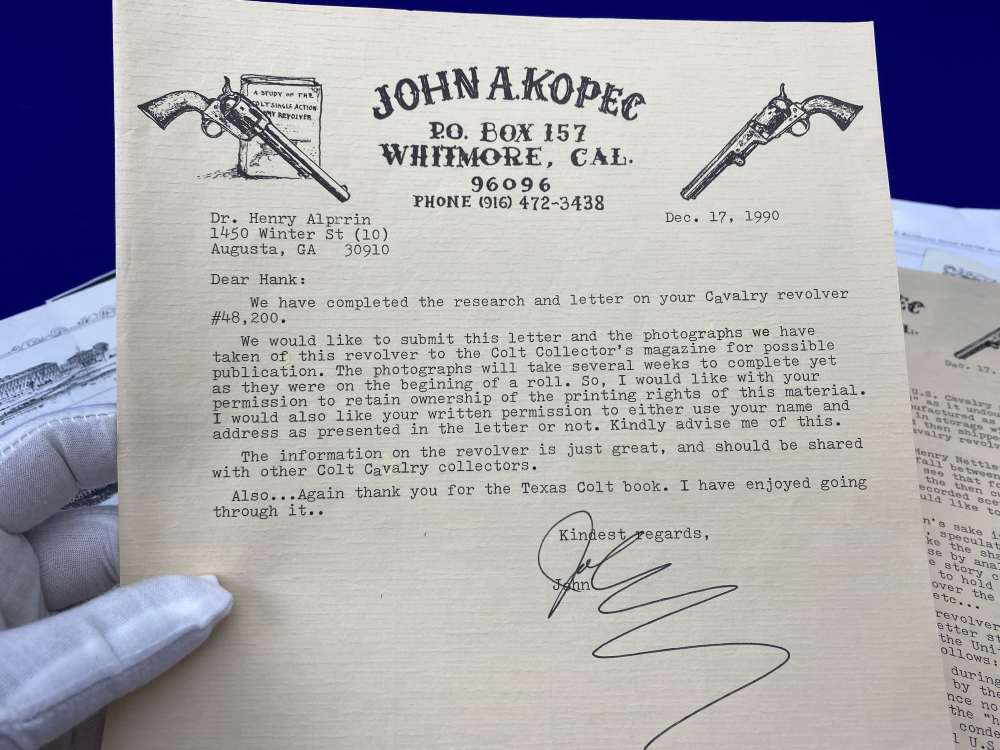 A STUDY OF THE
COLT SINGLE ACTION
ARMY REVOLVER
JOHN A. KOPEC
P.O. BOX 157
WHITMORE, CAL.
96096
PHONE (916) 472-3438
Dr. Henry Alprrin
1450 Winter St (10)
Augusta, GA 30910
Dec. 17, 1990
Dear Hank:
We have completed the research and letter on your Cavalry revolver
#48,200.
We would like to submit this letter and the photographs we have
taken of this revolver to the Colt Collector's magazine for possible
publication. The photographs will take several weeks to complete yet
as they were on the begining of a roll. So, I would like with your
permission to retain ownership of the printing rights of this material.
I would also like your written permission to either use your name and
address as presented in the letter or not. Kindly advise me of this.
The information on the revolver is just great, and should be shared
with other Colt Cavalry collectors.
Also...Again thank you for the Texas Colt book. I have enjoyed going
through it..
Kindest regards,
John
Dec. 17,
U.S. Cavalry
as it
in storage
then
Henry
fall between
see that
the then
sake
the
story
to hold
over the
etc...
revolver
the
during
by the
no
the "h
U.S.